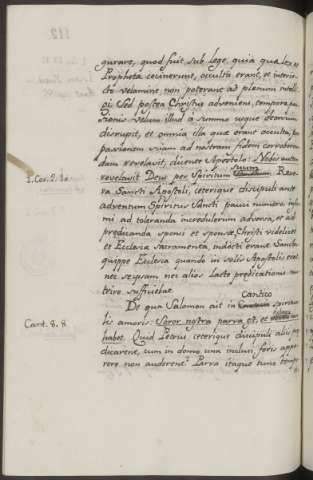 gurare, quod fuit sub lege, quia qua lex et
Prophetæ cecinerunt, occulta erant, et interie-
cto velamine non poterant ad plenum intelli-
gi. Sed postea Christus adveniens, tempore pas-
sionis velum illud a summo usque deorsum
disrupit, et omnia illa quæ erant occulta, per
passionem suam ad nostram fidem corroboran-
dam revelavit, dicente Apostolo: Nobis autem
1. Cor. 2. 10
revelavit Deus per Spiritum suum. Reve-
ra Sancti Apostoli, ceterique discipuli ante
adventum Spiritus Sancti pauci numero infir-
mi ad toleranda incredulorum adversa, et ad
prædicanda sponsi et sponsæ, Christi videlicet
et Ecclesiæ Sacramenta, indocti erant. Sancta
quippe Ecclesia quando in solis Apostolis erat
nec seipsam nec alios lacte prædicationis nu-
trire sufficiebat.
De qua Salomon ait in Cantico spirita-
lis amoris: Soror nostra parva est, et ubera non
Cant. 8. 8
habet. Quid Petrus ceterique discipuli aliis præ-
dicarent, cum in domo una inclusi foris appa-
rere non auderent? Parva itaque tunc tempo-